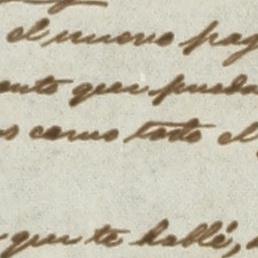 el nuevo pag
ento que pueda
s como todo el
que te hablé,